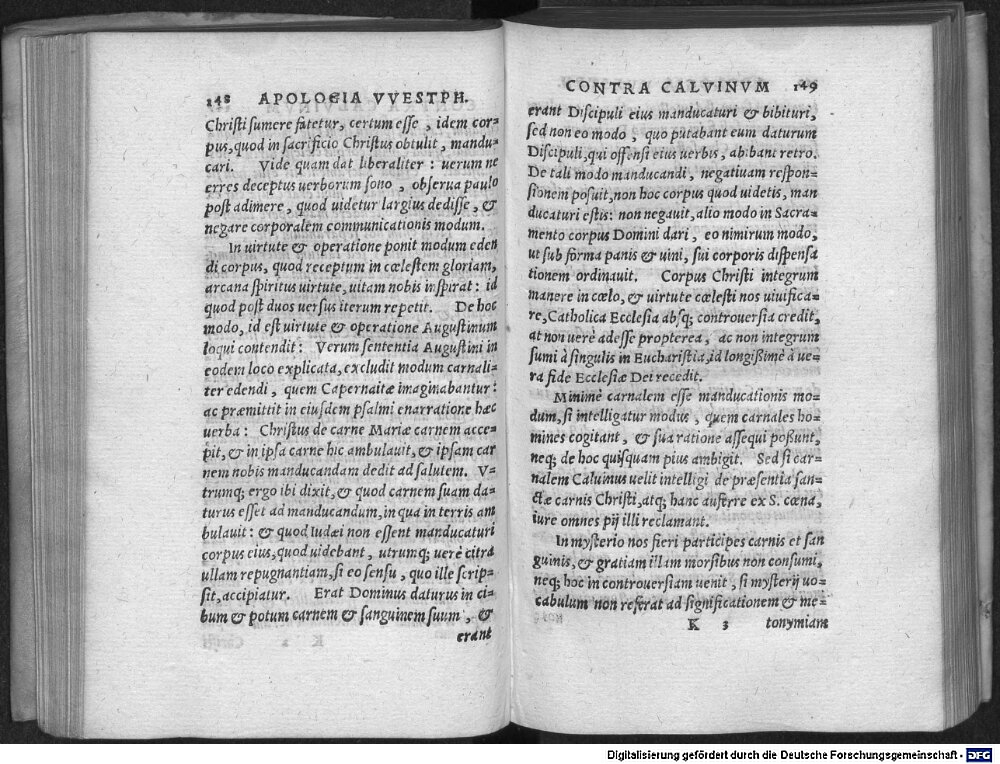 148 APOLOGIA VVESTPH.
Christi sumere fatetur, certum esse, idem cor-
pus, quod in sacrificio Christus obtulit, mandu-
cari. Vide quam dat liberaliter: uerum ne
erres deceptus uerborum sono, obserua paulo
post adimere, quod uidetur largius dedisse, &
negare corporalem communicationis modum.
In uirtute & operatione ponit modum eden
di corpus, quod receptum in cœlestem gloriam,
arcana spiritus uirtute, uitam nobis inspirat: id
quod post duos uersus iterum repetit. De hoc
modo, id est uirtute & operatione Augustinum
loqui contendit: Verum sententia Augustini in
eodem loco explicata, excludit modum carnali-
ter edendi, quem Capernaitæ imaginabantur:
ac præmittit in eiusdem psalmi enarratione hæc
uerba: Christus de carne Mariæ carnem acce-
pit, & in ipsa carne hic ambulauit, & ipsam car
nem nobis manducandam dedit ad salutem. V-
trumq; ergo ibi dixit, & quod carnem suam da-
turus esset ad manducandum, in qua in terris am
bulauit: & quod Iudæi non essent manducaturi
corpus eius, quod uidebant, utrumq; uerè citra
ullam repugnantiam, si eo sensu, quo ille scrip-
sit, accipiatur. Erat Dominus daturus in ci-
bum & potum carnem & sanguinem suum, &
erant
CONTRA CALVINVM 149
erant Discipuli eius manducaturi & bibituri,
sed non eo modo, quo putabant eum daturum
Discipuli, qui offensi eius uerbis, abibant retro.
De tali modo manducandi, negatiuam respon-
sionem posuit, non hoc corpus quod uidetis, man
ducaturi estis: non negauit, alio modo in Sacra-
mento corpus Domini dari, eo nimirum modo,
ut sub forma panis & uini, sui corporis dispensa
tionem ordinauit. Corpus Christi integrum
manere in cœlo, & uirtute cœlesti nos uiuifica-
re, Catholica Ecclesia absq; controuersia credit,
at non uerè adesse propterea, ac non integrum
sumi à singulis in Eucharistia, id longißimè à ue-
ra fide Ecclesiæ Dei recedit.
Minimè carnalem esse manducationis mo-
dum, si intelligatur modus, quem carnales ho-
mines cogitant, & sua ratione assequi poßunt,
neq; de hoc quisquam pius ambigit. Sed si car-
nalem Caluinus uelit intelligi de præsentia san-
ctæ carnis Christi, atq; hanc auferre ex S. cœna,
iure omnes pij illi reclamant.
In mysterio nos fieri participes carnis et san
guinis, & gratiam illam morsibus non consumi,
neq; hoc in controuersiam uenit, si mysterij uo-
cabulum non referat ad significationem & me-
K 3 tonymiam
Digitalisierung gefördert durch die Deutsche Forschungsgemeinschaft - DFG